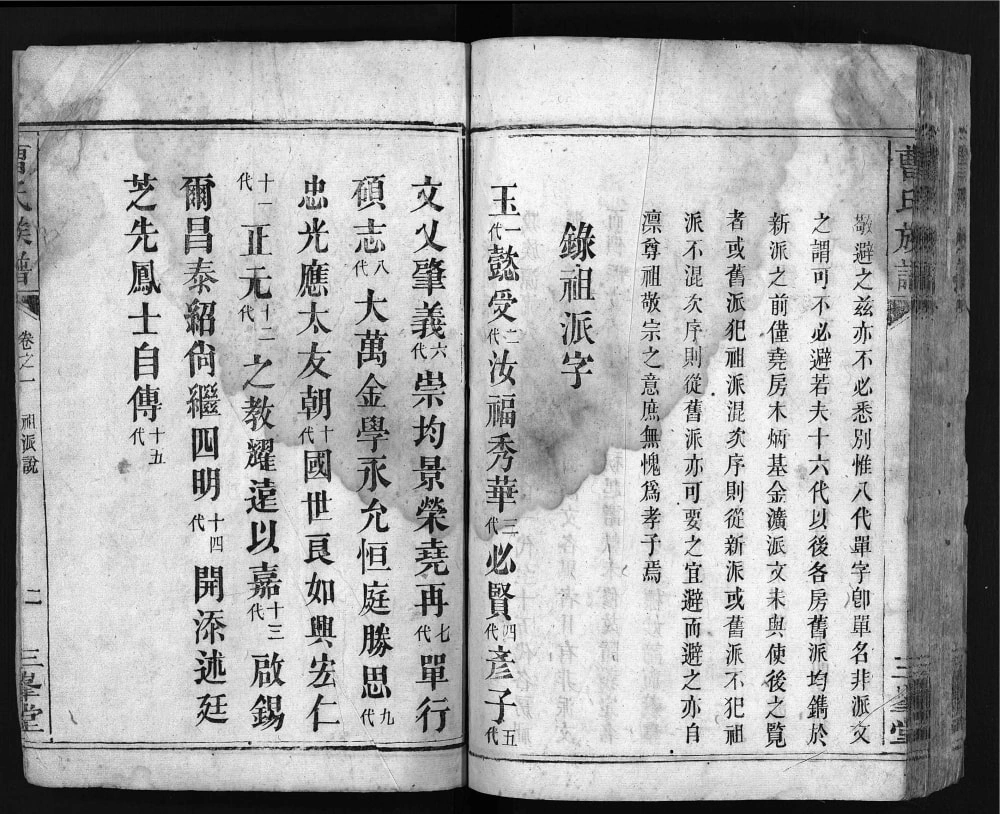 曹氏族譜
三峯堂
敬避之兹亦不必悉別惟八代單字卽單名非派文
之謂可不必避若夫十六代以後各房舊派均鐫於
新派之前僅堯房木炳基金潢派文未與使後之覽
者或舊派犯祖派混次序則從新派或舊派不犯祖
派不混次序則從舊派亦可要之宜避而避之亦自
凛尊祖敬宗之意庶無愧爲孝子焉
錄祖派字
玉一代懿受二代汝福秀華三代必賢四代彥子五代
文乂肇義六代崇均景榮堯再七代單行
碩志八代大萬金學永允恒庭勝思九代
忠光應太友朝十代國世良如興宏仁
十一代正元十二代之教耀遠以嘉十三代啟錫
爾昌泰紹尙繼四明十四代開添述廷
芝先鳳士自傳十五代
曹氏族譜
卷之一
祖派說
二
三峯堂